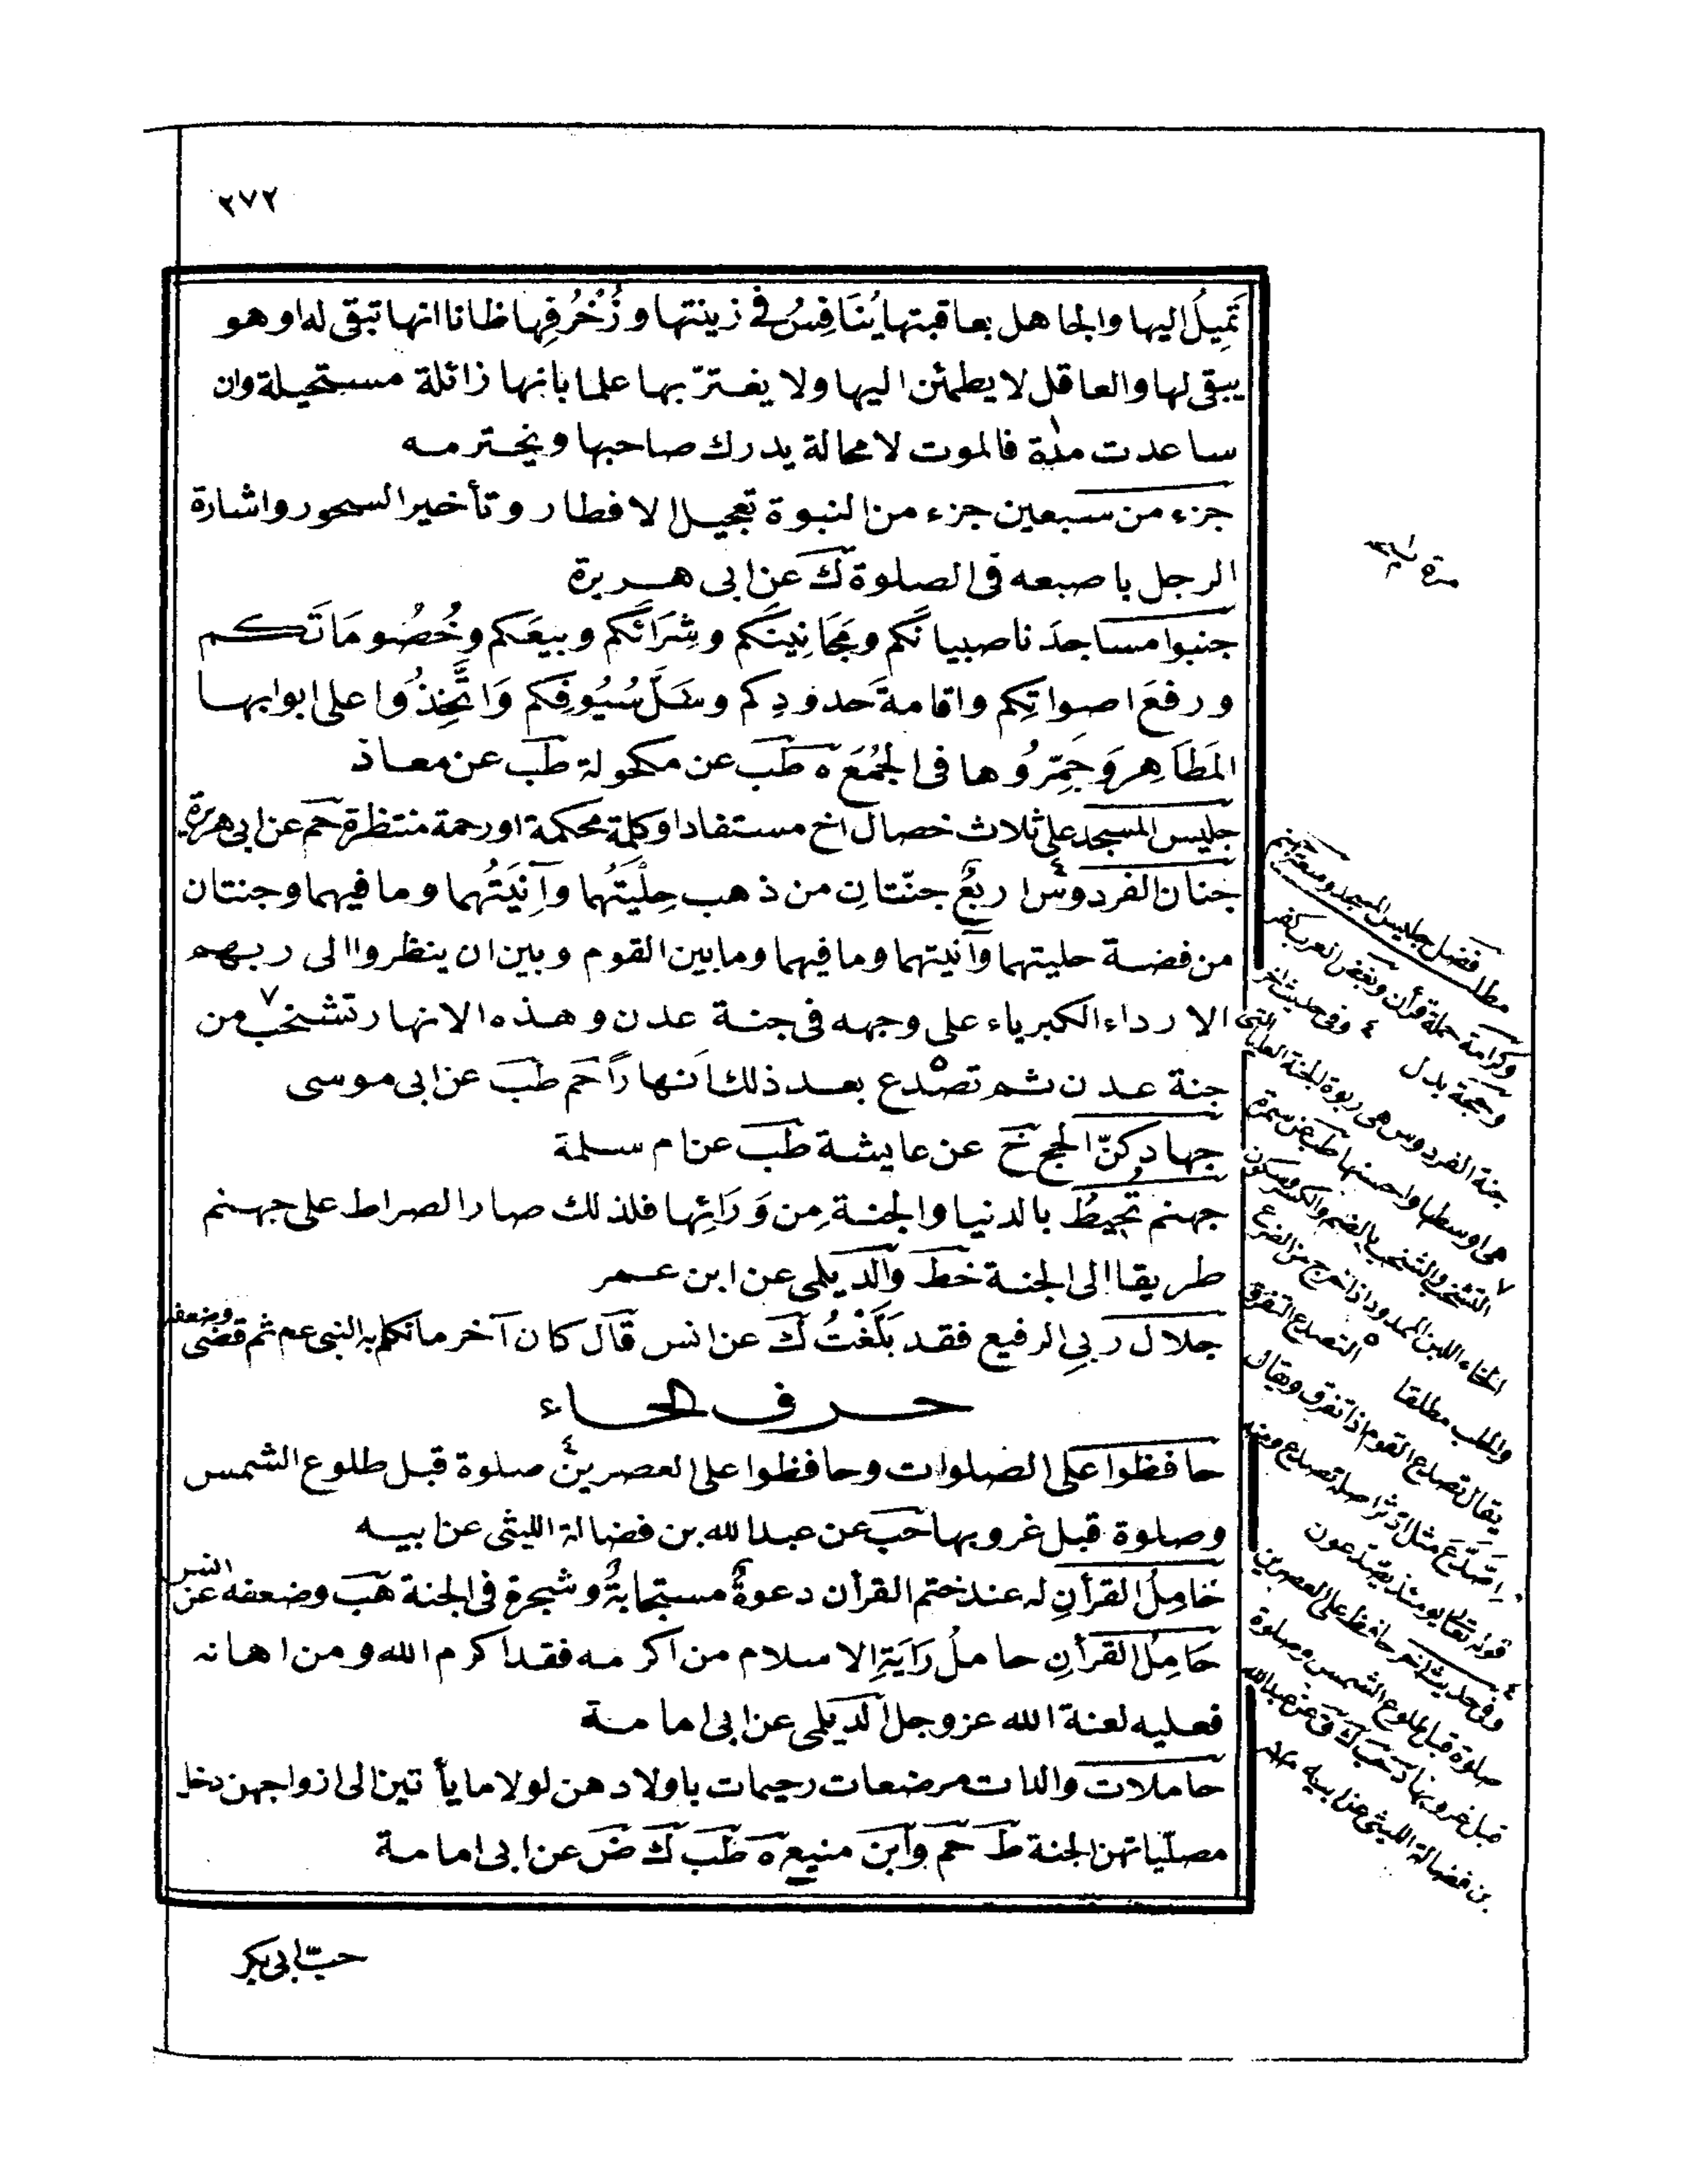 ٢٧٢
تَمِيلُ اليها والجاهل بعاقبتها يُنَافِسُ فى زينتها وزُخْرُفِها ظانا انها تبقى له او هو
يبقى لها والعاقل لا يطمئن اليها ولا يغترّ بها علما بانها زائلة مستحيلة وان
ساعدت مدة فالموت لا محالة يدرك صاحبها ويخترمه
جزء من سبعين جزء من النبوة تعجيل الافطار وتأخير السحور واشارة
الرجل باصبعه فى الصلوة ك عن ابى هريرة
جنبوا مساجدَنا صبيانَكم ومَجَانِينَكم وشِرَائَكم وبيعَكم وخُصُومَاتَكم
ورفعَ اصواتِكم واقامةَ حدودِكم وسَلَّ سُيُوفِكم وَاتَّخِذُوا على ابوابها
المَطَاهِر وَجَمِّرُوها فى الجُمَع ه طب عن مكحولة طب عن معاذ
جليس المسجد على ثلاث خصال اخ مستفاد او كلمة محكمة او رحمة منتظرة حم عن ابى هريرة
جنان الفردوس ٤ اربعٌ جنّتانِ من ذهب حِلْيَتُهُما وآنِيَتُهُما وما فيهما وجنتان
من فضة حليتهما وآنيتهما وما فيهما وما بين القوم وبين ان ينظروا الى ربهم
الا رداء الكبرياء على وجهه فى جنة عدن وهذه الانهار تشخب ٧ من
جنة عدن ثم تصدع ٥ بعد ذلك اَنهاراً حم طب عن ابى موسى
جهادكنّ الحج خ عن عايشة طب عن ام سلمة
جهنم تُحِيطُ بالدنيا والجنة مِن وَرَائِها فلذلك صار الصراط على جهنم
طريقا الى الجنة خط والديلمى عن ابن عمر
جلال ربى الرفيع فقد بَلَّغْتُ ك عن انس قال كان آخر ما تكلم به النبى عم ثم قضى وضعفه
حرف الحاء
حافظوا على الصلوات وحافظوا على العصرين ٤ صلوة قبل طلوع الشمس
وصلوة قبل غروبها حب عن عبدالله بن فضالة الليثى عن ابيه
حَامِلُ القرأنِ له عند ختم القرأن دعوةٌ مستجابةٌ وشجرة فى الجنة هب وضعفه عن انس
حَامِلُ القرأنِ حاملُ رَايَةِ الاسلام من اكرمه فقد اكرم الله ومن اهانه
فعليه لعنة الله عز وجل الديلمى عن ابى امامة
حاملات والدات مرضعات رحيمات باولادهن لولا ما يأتين الى ازواجهن دخل
مصلّياتهن الجنة ط حم وابن منيع ه طب ك ض عن ابى امامة
حبّ ابى بكر
مطلب فضل جليس المسجد
وكرامة حملة قرأن وبغض العرب كفر
وحجة بدل
٤ وفى حديث اخر
جنة الفردوس هى ربوة الجنة العليا التى
هى اوسطها واحسنها طب عن سمرة
٧ التشخب والشخب بالضم والكسر وسكون
الخاء اللبن الممدود اذا خرج من الضرع
والحلب مطلقا
٥ التصدع التفرق
يقال تصدع القوم اذا تفرق ويقال
اِصَّدَّعَ مثل ادّثر اصله تصدع ومنه
قوله تعالى يومئذ يصّدّعون
٤ وفى حديث اخر حافظ على العصرين
صلوة قبل طلوع الشمس وصلوة
قبل غروبها د حب ك ق عن عبدالله
بن فضالة الليثى عن ابيه